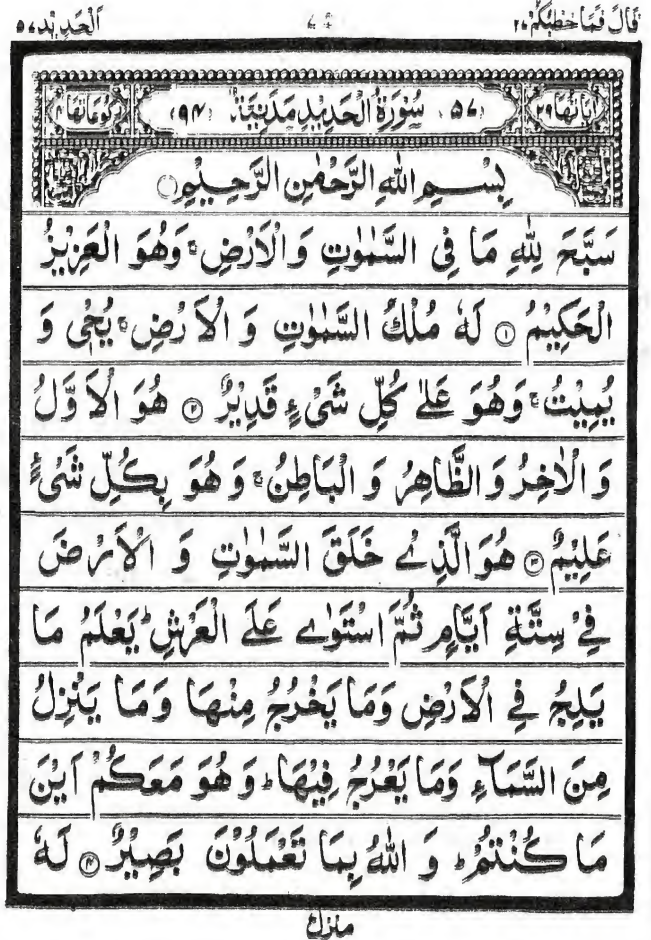 قَالَ فَمَا خَطْبُكُمْ ٢٧
اَلْحَدِيْد ٥٧
اٰيَاتُهَا ٢٩
(٥٧) سُوْرَةُ الْحَدِيْدِ مَدَنِيَّةٌ (٩٤)
رُكُوْعَاتُهَا ٤
بِسْمِ اللّٰهِ الرَّحْمٰنِ الرَّحِيْمِ
سَبَّحَ لِلّٰهِ مَا فِى السَّمٰوٰتِ وَ الْاَرْضِ ۚ وَهُوَ الْعَزِيْزُ
الْحَكِيْمُ ۝١ لَهٗ مُلْكُ السَّمٰوٰتِ وَ الْاَرْضِ ۚ يُحْىٖ وَ
يُمِيْتُ ۚ وَهُوَ عَلٰى كُلِّ شَىْءٍ قَدِيْرٌ ۝٢ هُوَ الْاَوَّلُ
وَ الْاٰخِرُ وَ الظَّاهِرُ وَ الْبَاطِنُ ۚ وَ هُوَ بِكُلِّ شَىْءٍ
عَلِيْمٌ ۝٣ هُوَ الَّذِىْ خَلَقَ السَّمٰوٰتِ وَ الْاَرْضَ
فِىْ سِتَّةِ اَيَّامٍ ثُمَّ اسْتَوٰى عَلَى الْعَرْشِ ؕ يَعْلَمُ مَا
يَلِجُ فِى الْاَرْضِ وَمَا يَخْرُجُ مِنْهَا وَمَا يَنْزِلُ
مِنَ السَّمَآءِ وَمَا يَعْرُجُ فِيْهَا ؕ وَ هُوَ مَعَكُمْ اَيْنَ
مَا كُنْتُمْ ؕ وَ اللّٰهُ بِمَا تَعْمَلُوْنَ بَصِيْرٌ ۝٤ لَهٗ
منزل